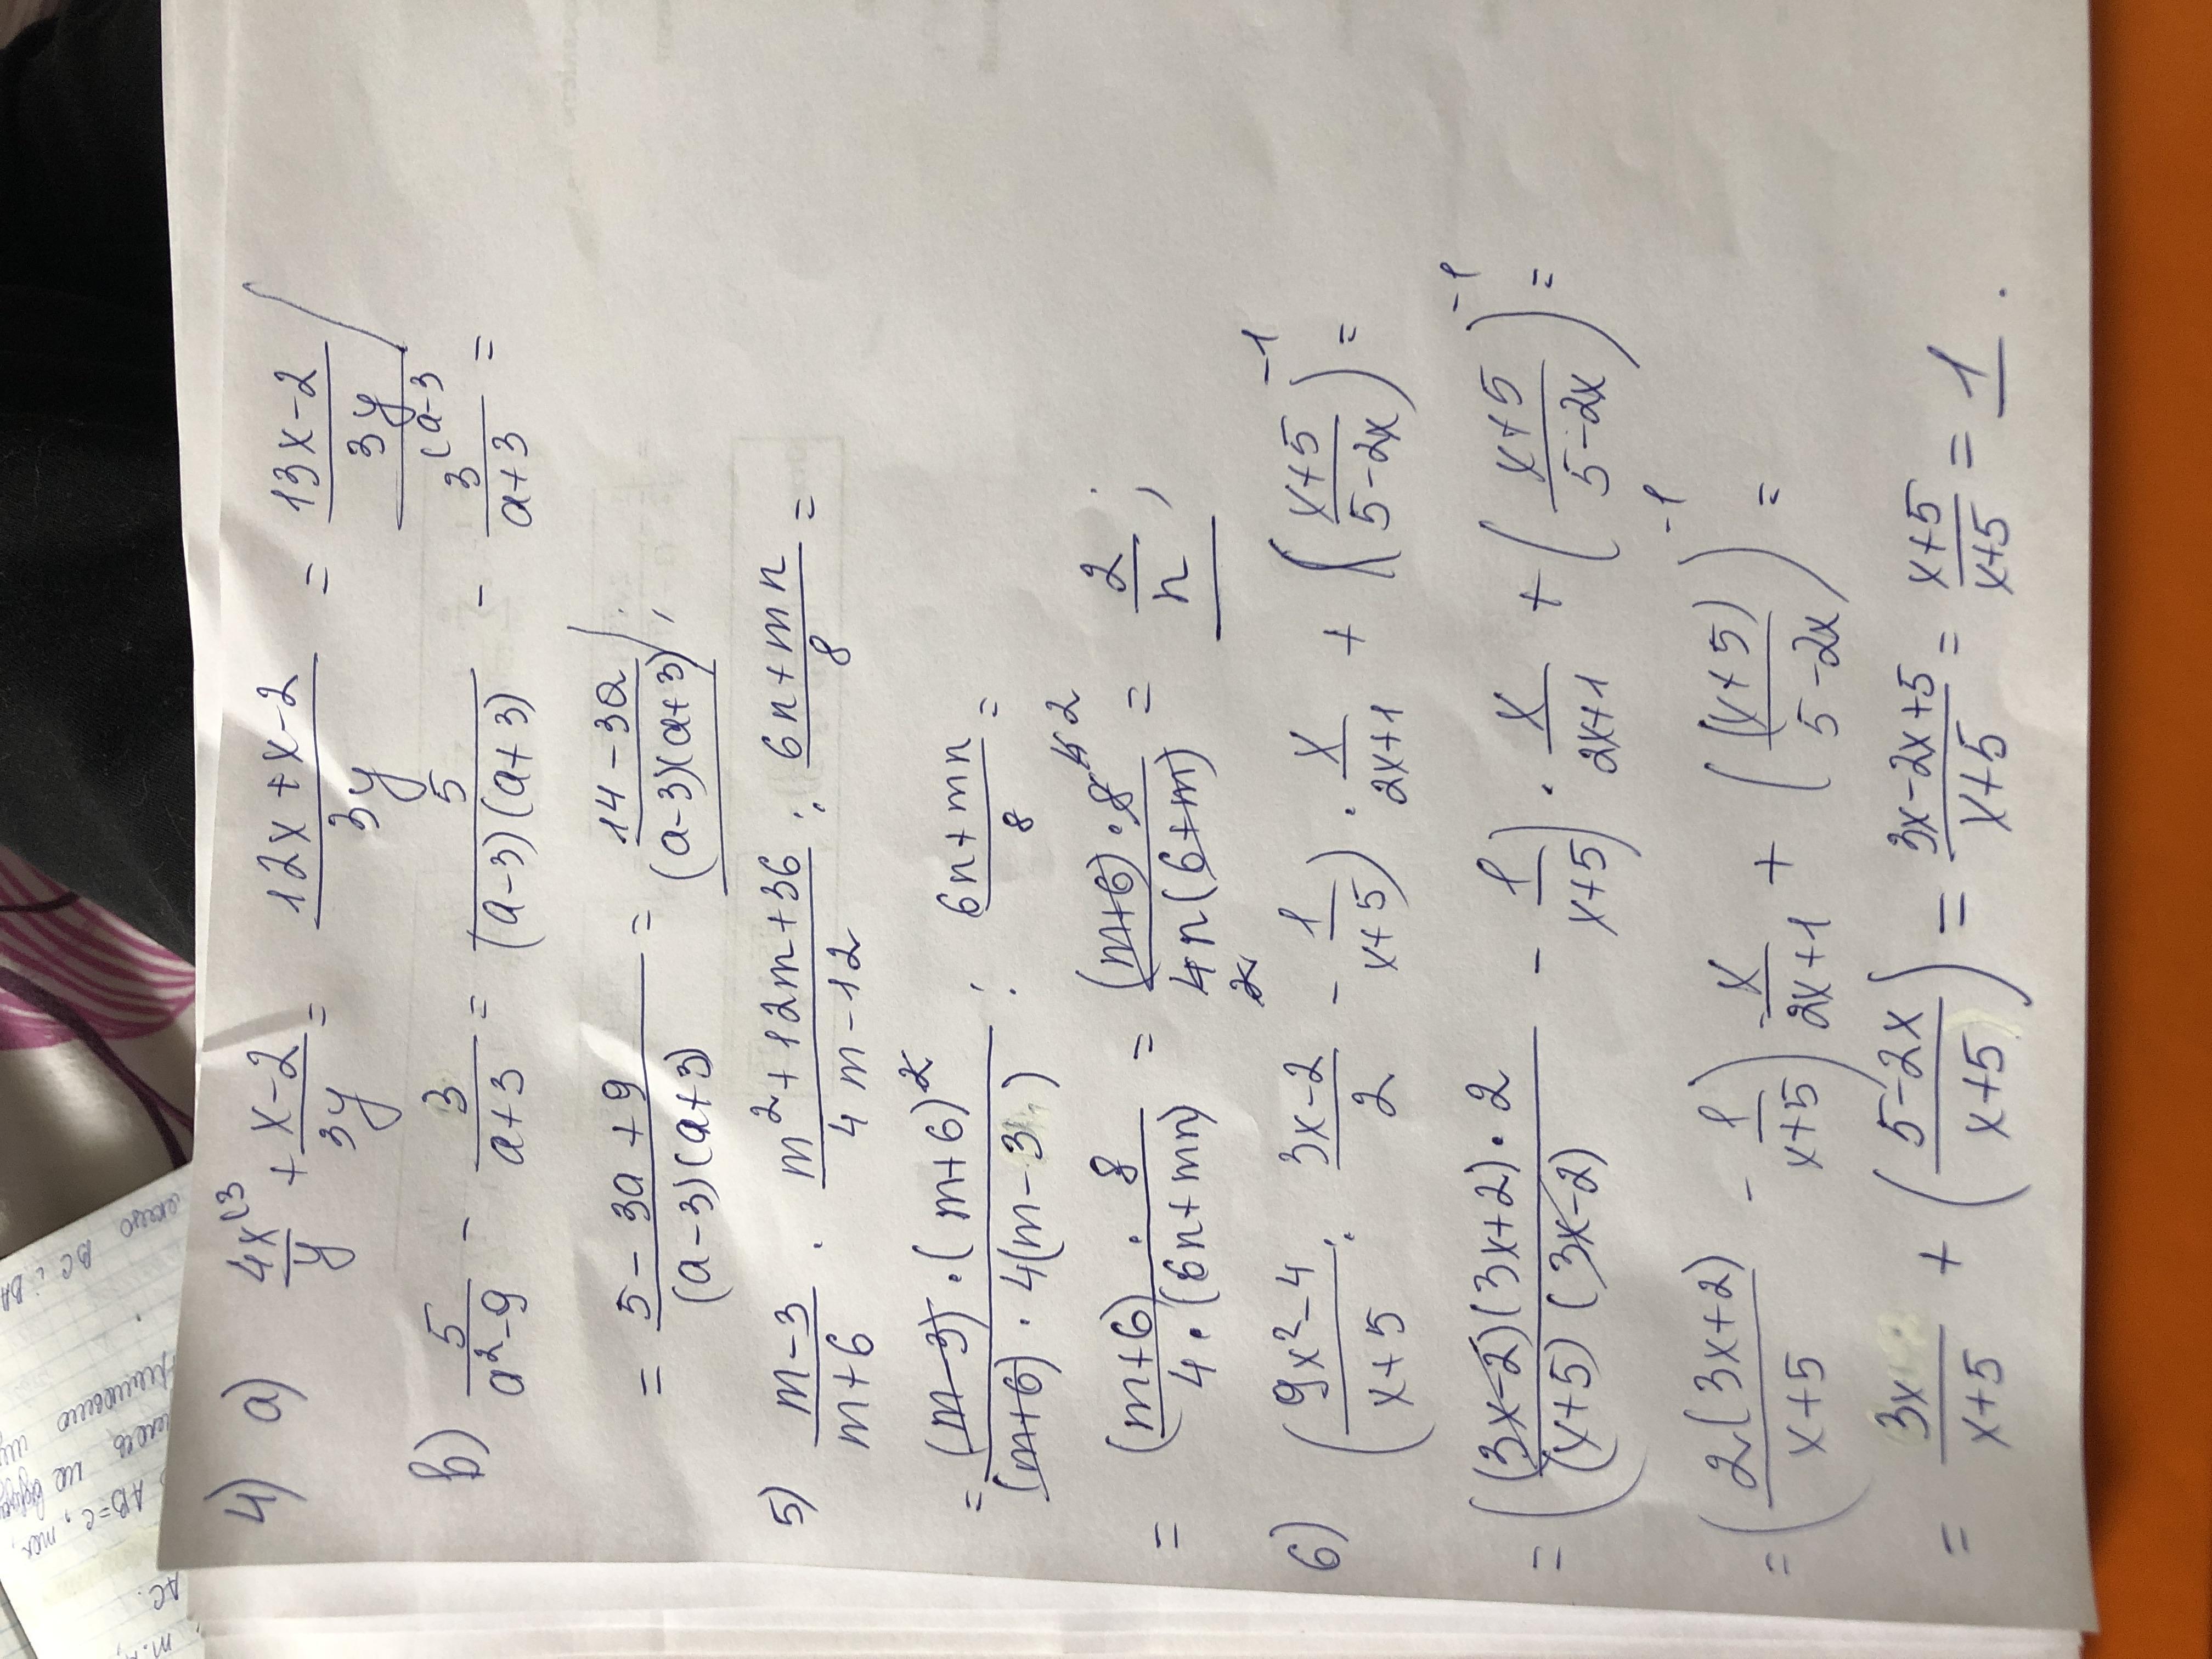 4) a) 4x^(3/y + x-2/3y = 12x+x-2/3y = 13x-2/3y
b) 5/a²-9 - 3/a+3 = 5/(a-3)(a+3) - 3^(a-3/a+3 =
= 5-3a+9/(a-3)(a+3) = 14-3a/(a-3)(a+3);
5) m-3/m+6 · m²+12m+36/4m-12 : 6n+mn/8 =
= (m-3)·(m+6)²/(m+6)·4(m-3) : 6n+mn/8 =
= (m+6)·8/4·(6n+mn) = (m+6)·8 4 2/4n(6+m) 2 = 2/n;
6) (9x²-4/x+5 : 3x-2/2 - 1/x+5) · x/2x+1 + (x+5/5-2x)^-1 =
= ((3x-2)(3x+2)·2/(x+5)(3x-2) - 1/x+5) · x/2x+1 + (x+5/5-2x)^-1 =
= (2(3x+2)/x+5 - 1/x+5) · x/2x+1 + ((x+5)/5-2x)^-1 =
= 3x/x+5 + (5-2x/x+5) = 3x-2x+5/x+5 = x+5/x+5 = 1.
AB=c,
BC i
AC.